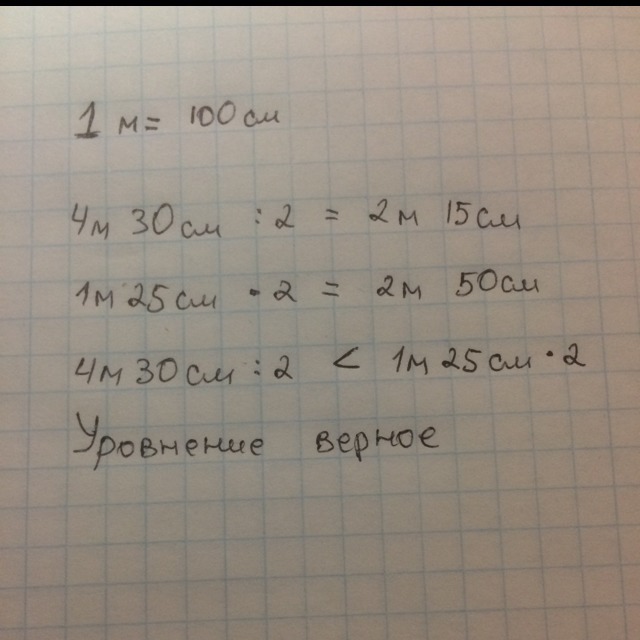 1 м = 100 см
4м 30 см : 2 = 2 м 15 см
1м 25 см • 2 = 2 м 50 см
4 м 30 см : 2 < 1м 25 см • 2
Уровнение верное